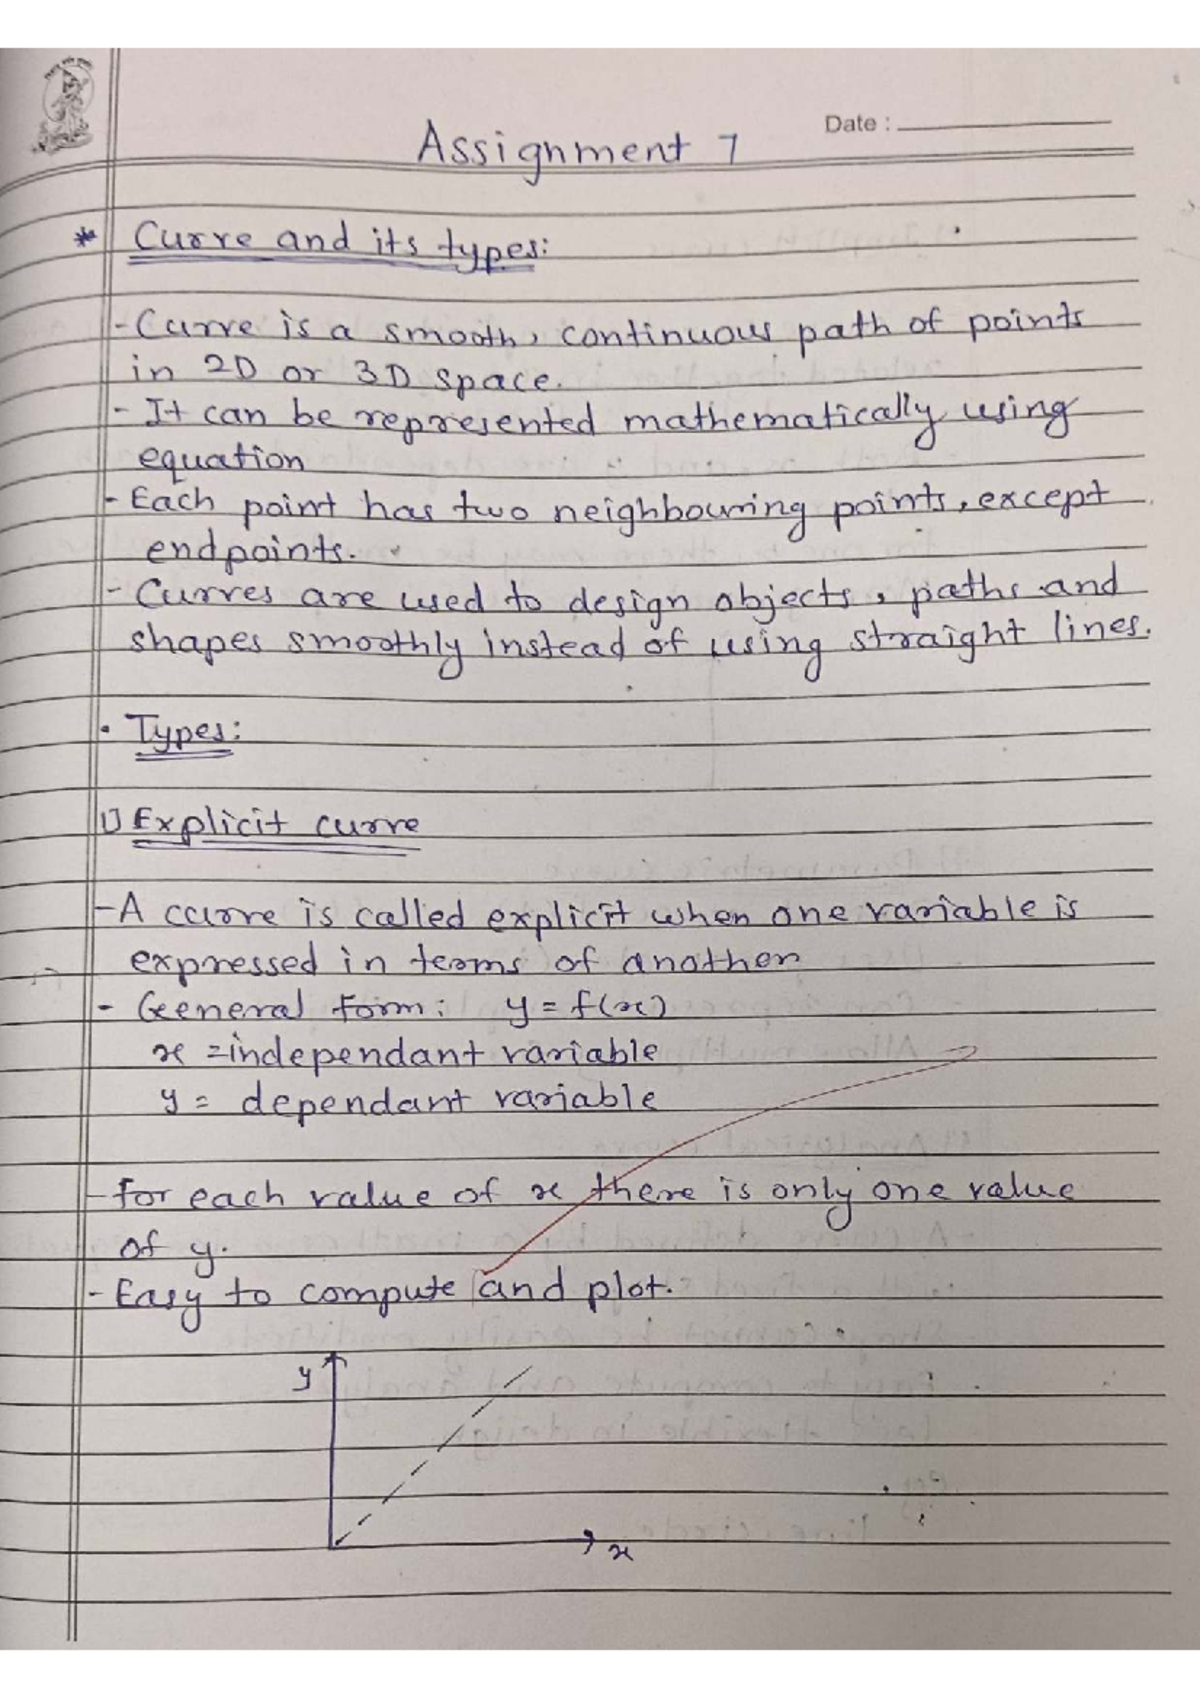 Date :
Assignment 7
* Curve and its types:
- Curve is a smooth, continuous path of points
in 2D or 3D space.
- It can be represented mathematically using
equation
- Each point has two neighbouring points, except
endpoints.
- Curves are used to design objects, paths and
shapes smoothly instead of using straight lines.
• Types:
1) Explicit curve
- A curve is called explicit when one variable is
expressed in terms of another
- General form: y = f(x)
x = independant variable
y = dependant variable
- for each value of x there is only one value
of y.
- Easy to compute and plot.
y
x